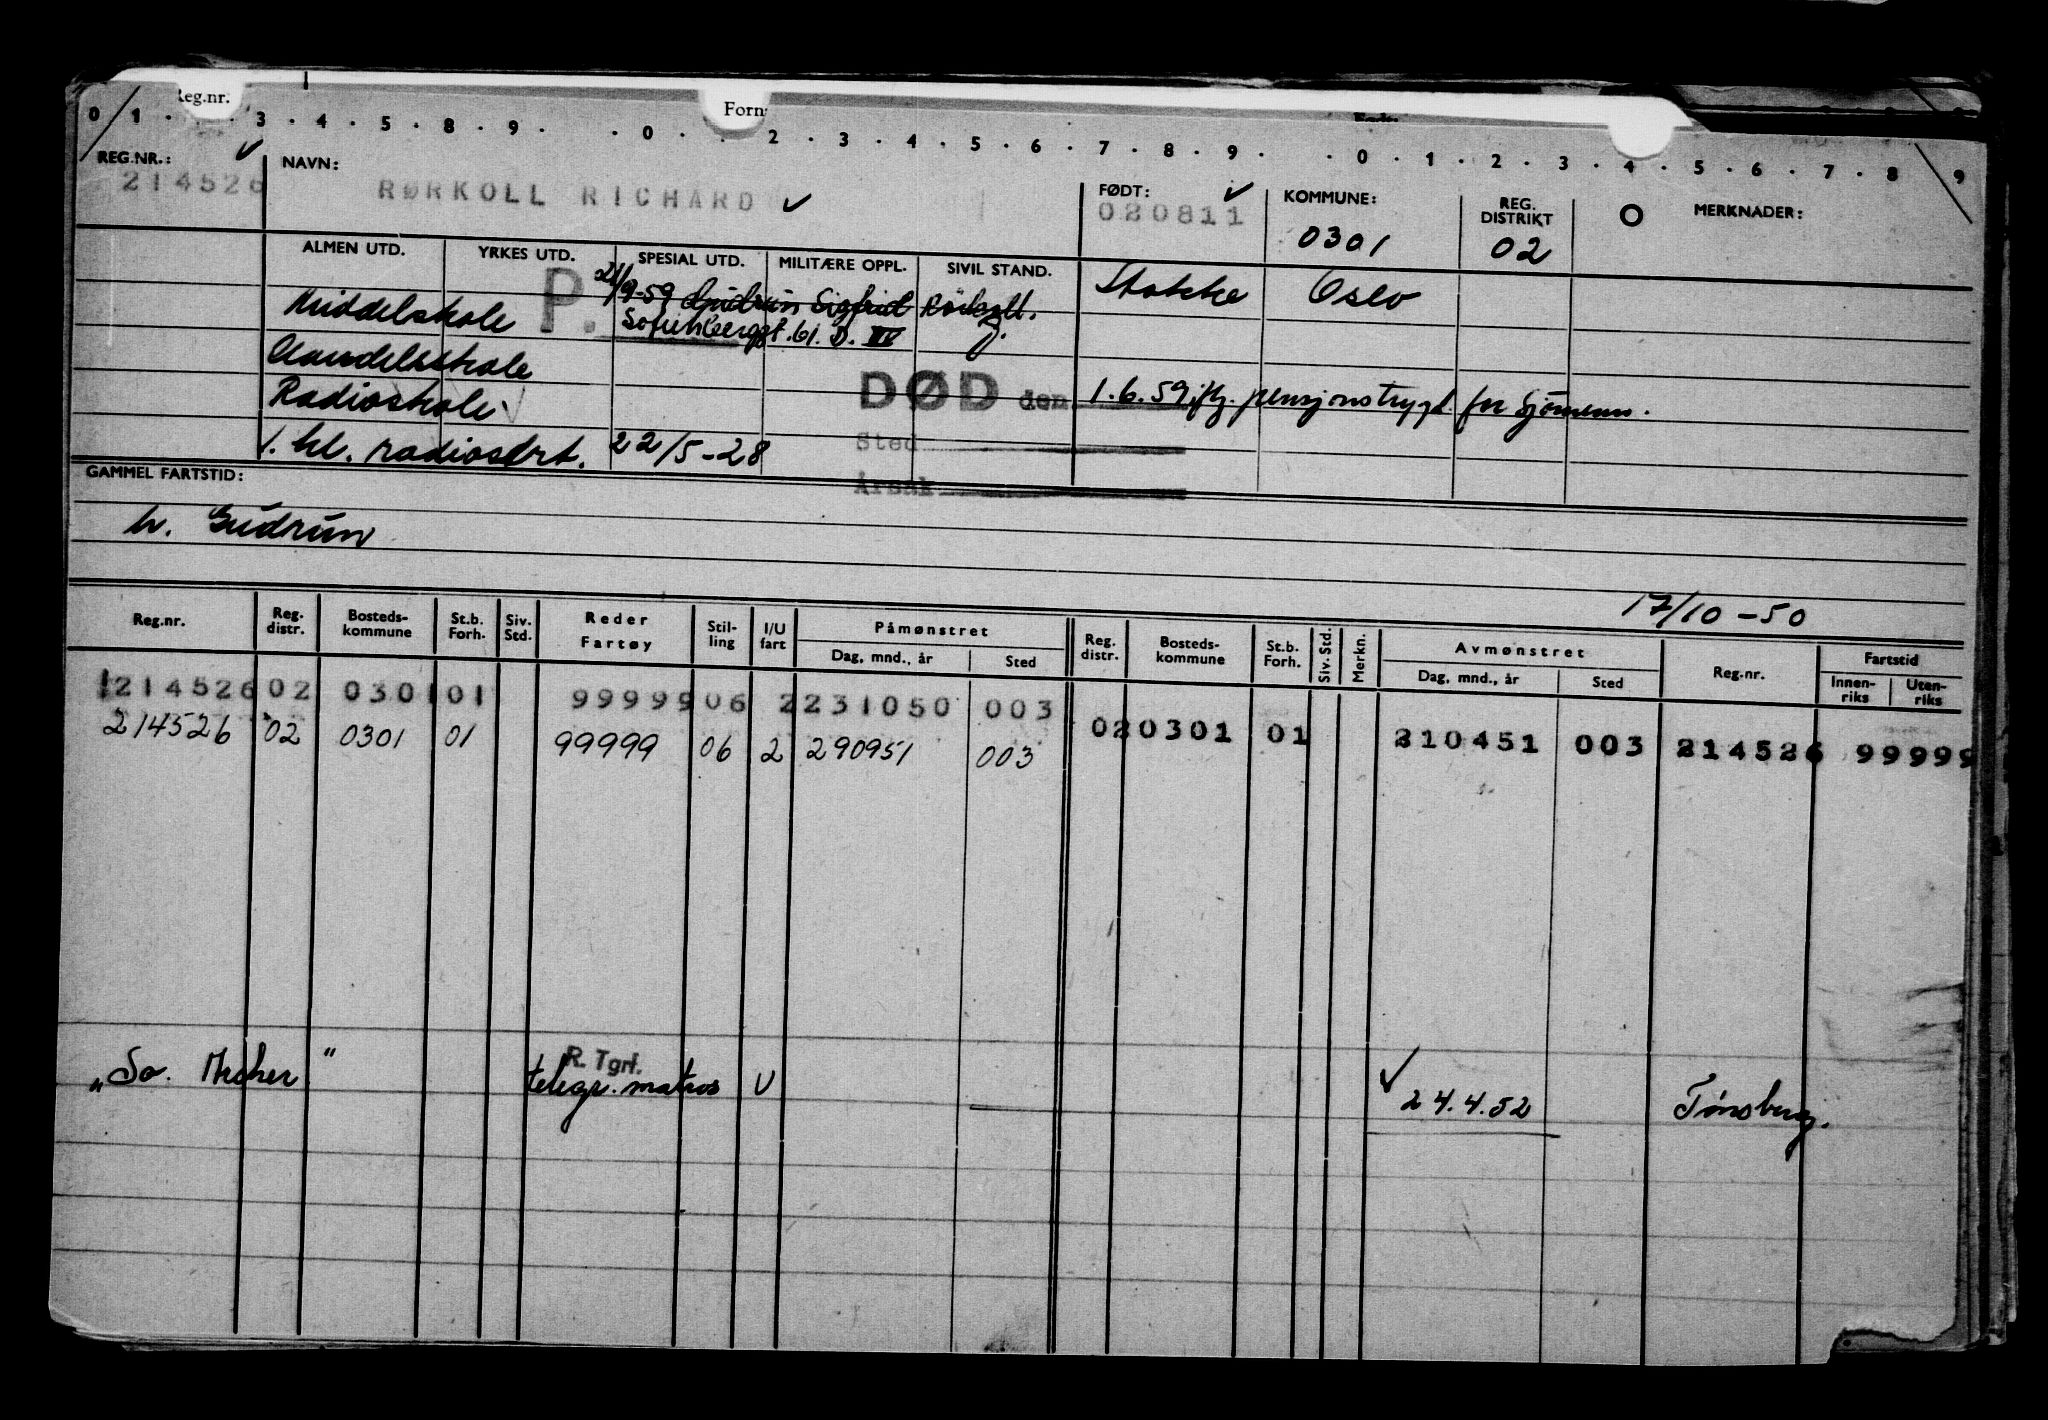 Reg.nr. Forn
0 1 · · 3 · 4 · 5 · 8 · 9 · · 0 · · 2 · 3 · 4 · 5 · 6 · 7 · 8 · 9 · · 0 · 1 · 2 · 3 · 4 · 5 · 6 · 7 · 8 · 9
REG.NR.: NAVN: FØDT: KOMMUNE: REG. DISTRIKT MERKNADER:
214526 RØRKOLL RICHARD 020811 0301 02
ALMEN UTD. YRKES UTD. SPESIAL UTD. MILITÆRE OPPL. SIVIL STAND.
P. 21/9-59 Gudrun Sigfrid Rörkoll. Stokke Oslo
Middelskole Sofienberggt. 61. D. IV
Handelsskole
Radioskole DØD den 1.6.59 ifg. pensjonstrygd. for Sjømenn.
1. kl. radiosert. 22/5-28 Sted
GAMMEL FARTSTID: Årsak
h. Gudrun
17/10-50
Reg.nr. Reg. distr. Bosteds-kommune St.b. Forh. Siv. Std. Reder Fartøy Stil-ling I/U fart Påmønstret Dag, mnd., år Sted Reg. distr. Bosteds-kommune St.b. Forh. Siv. Std. Merkn. Avmønstret Dag, mnd., år Sted Reg.nr. Fartstid Innen-riks Uten-riks
214526 02 0301 01 99999 06 2 231050 003
020301 01 210451 003 214526 99999
214526 02 0301 01 99999 06 2 290951 003
R. Tgrf.
"So. " telegr. matros U 24.4.52 Tønsberg.